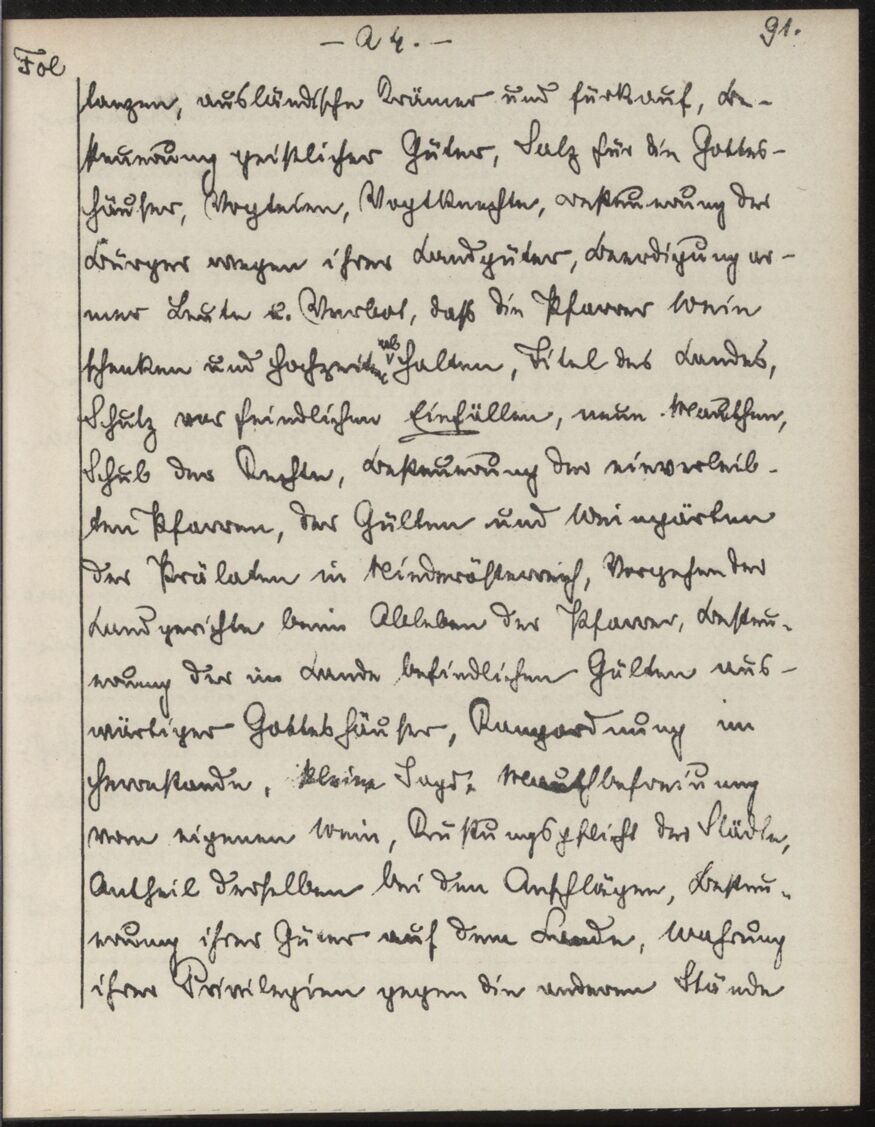 — A 4. —
91.
Fol
lanzen, ausländische Krämer und Fürkauf, Be-
steuerung geistlicher Güter, Salz für die Gottes-
häuser, Vogteien, Vogtknechte, Besteuerung der
Bürger wegen ihrer Landgüter, Beerdigung ar-
mer Leute u. Verbot, daß die Pfarrer Wein
schenken und Hochzeiten abhalten, Titel des Landes,
Schutz vor feindlichen Einfällen, neue Mauthen,
Schub der Rechte, Besteuerung der einverleib-
ten Pfarren, der Gülten und Weingärten
der Prälaten in Niederösterreich, Vorgehen der
Landgerichte beim Ableben der Pfarrer, Besteu-
erung der im Lande befindlichen Gülten aus-
wärtiger Gotteshäuser, Rangordnung im
Herrenstande, kleine Jagd, Mauthbefreiung
vom eigenen Wein, Rüstungspflicht der Städte,
Antheil derselben bei den Anschlägen, Besteu-
erung ihrer Güter auf dem Lande, Wahrung
ihrer Privilegien gegen die anderen Stände